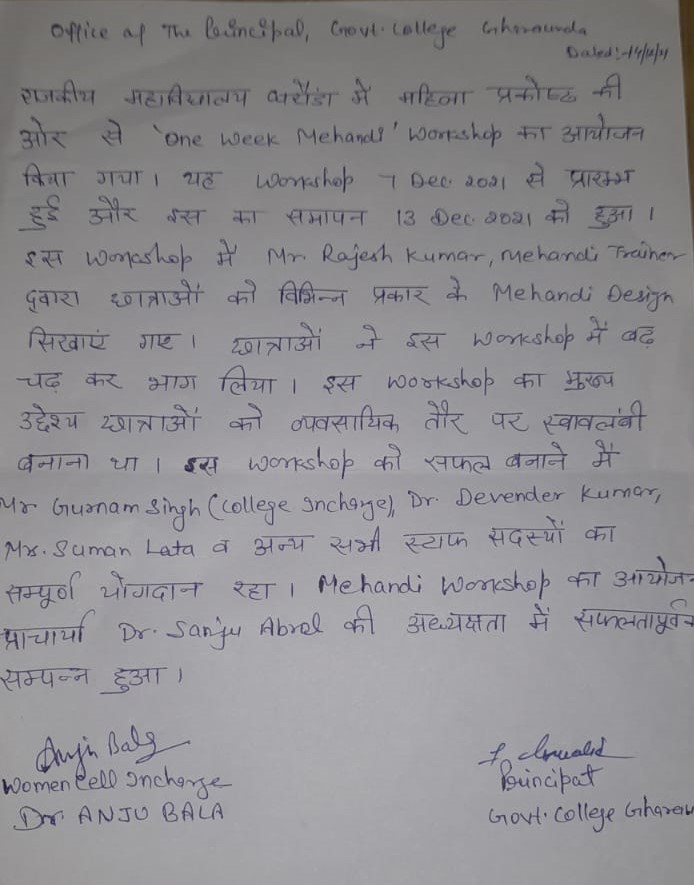 Office of The Principal, Govt. College Gharaunda
Dated:-14/12/21
राजकीय महाविद्यालय घरौंडा में महिला प्रकोष्ठ की
ओर से 'One Week Mehandi' Workshop का आयोजन
किया गया। यह Workshop 7 Dec. 2021 से प्रारम्भ
हुई और इस का समापन 13 Dec. 2021 को हुआ।
इस Workshop में Mr. Rajesh Kumar, Mehandi Trainer
द्वारा छात्राओं को विभिन्न प्रकार के Mehandi Design
सिखाएं गए। छात्राओं ने इस Workshop में बढ़
चढ़ कर भाग लिया। इस Workshop का मुख्य
उद्देश्य छात्राओं को व्यवसायिक तौर पर स्वावलंबी
बनाना था। इस Workshop को सफल बनाने में
Mr Gurnam Singh (College Incharge), Dr. Devender Kumar,
Mrs. Suman Lata व अन्य सभी स्टाफ सदस्यों का
सम्पूर्ण योगदान रहा। Mehandi Workshop का आयोजन
प्राचार्या Dr. Sanju Abrol की अध्यक्षता में सफलतापूर्वन
सम्पन्न हुआ।
Anju Bala
Women Cell Incharge
Principal
Dr. ANJU BALA
Govt. College Gharau